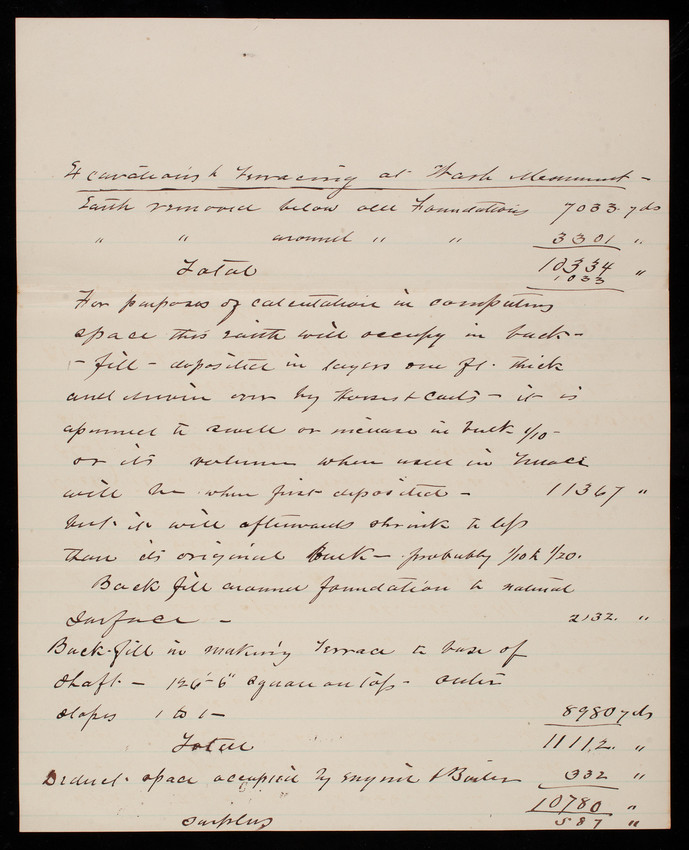 Excavations & Terracing at Wash Monument –
Earth removed below old Foundations 7033 yds
" " around " " 3301 "
Total 10334 "
1033
For purposes of calculation in computing
space this earth will occupy in back-
- fill – deposited in layers one ft. thick
and driven over by Horses & carts – it is
assumed to swell or increase in bulk 1/10 –
or its volume when used in Terrace
will be when first deposited – 11367 "
but it will afterwards shrink to less
than its original bulk – probably 1/10 to 1/20.
Back fill around foundation to natural
Surface – 2132. "
Back-fill in making Terrace to base of
Shaft – 126'-6" square on top – outer
slopes 1 to 1 – 8980 yds
Total 11112. "
Deduct space occupied by Engine & Boiler 332 "
10780 "
Surplus 587 "